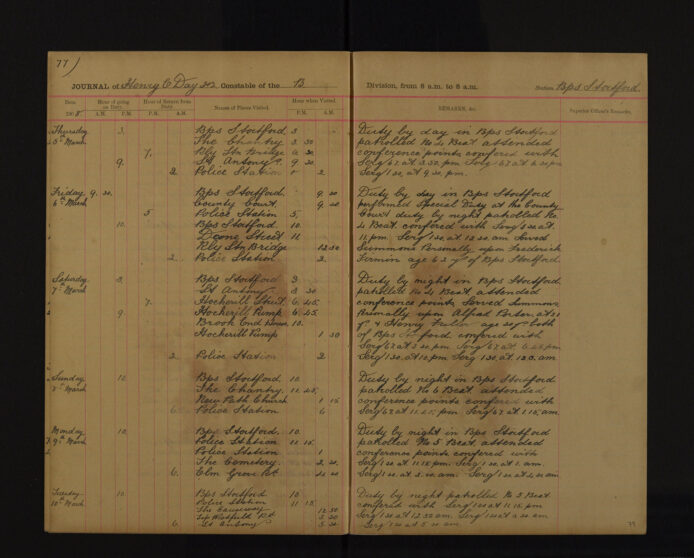 77)
JOURNAL of Henry C Day 342 Constable of the B
Date 1908. Hour of going on Duty. A.M. P.M. Hour of Return from Duty. P.M. A.M. Names of Places Visited. Hour when Visited. P.M. A.M.
Thursday 3. Bps Stortford 3
5th March The Chantry 3 30
7. Rly Stn Bridge 6 30
9. St Antony 9. 30
2 Police Station 2
Friday 9. 30 Bps Stortford. 9 30
6th March County Court. 9 30
5 Police Station 5
10. Bps Stortford 10
Street 11
Rly Stn Bridge 12 30
2 Police Station 2
Saturday 3 Bps Stortford 3
7th March St Antony 3 30
7. Hockerill Street 6 45
9 Hockerill Pump 6 45
Brook End House 10.
Hockerill Pump 1 30
2 Police Station 2
Sunday 10. Bps Stortford 10.
8th March The Chantry 11 25
New Path Church 1 15
6 Police Station 6
Monday 10. Bps Stortford. 10.
9th March Police Station 11 15
Police Station 1
The Cemetery
6. Elm Grove Rd
Tuesday 10. Bps Stortford 10.
10th March Police Station 11 15
The Causeway 12 30
6. St Antony
Division, from 8 a.m. to 8 a.m. Station Bps Stortford
REMARKS, &c. Superior Officer's Remarks.
Duty by day in Bps Stortford
patrolled No 4 Beat attended
conference points confered with
Serg 67 at 3.30 pm Serg 67 at 6.30 pm
Serg 1 30. at 9.30 pm.
Duty by day in Bps Stortford
performed Special Duty at the County
Court duty by night patrolled No
4 Beat. confered with Serg 1 30 at
11. pm. Serg 1 30. at 12.30 am Served
Summons Personally upon Frederick
Firmin age 62 yrs of Bps Stortford
Duty by night in Bps Stortford
patrolled No 4 Beat attended
conference points, Served Summons
Personally upon Alfred at 21
yrs & Henry age 20 yrs both
of Bps Stortford confered with
Serg 67 at 3.30 pm Serg 67 at 6.45 pm
Serg 1 30. at 10. pm Serg 1 30. at 1.30. am.
Duty by night in Bps Stortford
patrolled No 6 Beat attended
conference points confered with
Serg 67 at 11.25, pm. Serg 67 at 1.15, am.
Duty by night in Bps Stortford
patrolled No 5 Beat, attended
conference points confered with
Serg 1 30 at 11.15 pm. Serg 1 30 at 1. am.
Serg 1 30. at am. Serg 1 30 at am
Duty by night patrolled No 3 Beat
confered with Serg 1 30 at 11.15 pm.
Serg 1 30 at 12.30 am. Serg 1 30 at am
Serg 1 30 at am.